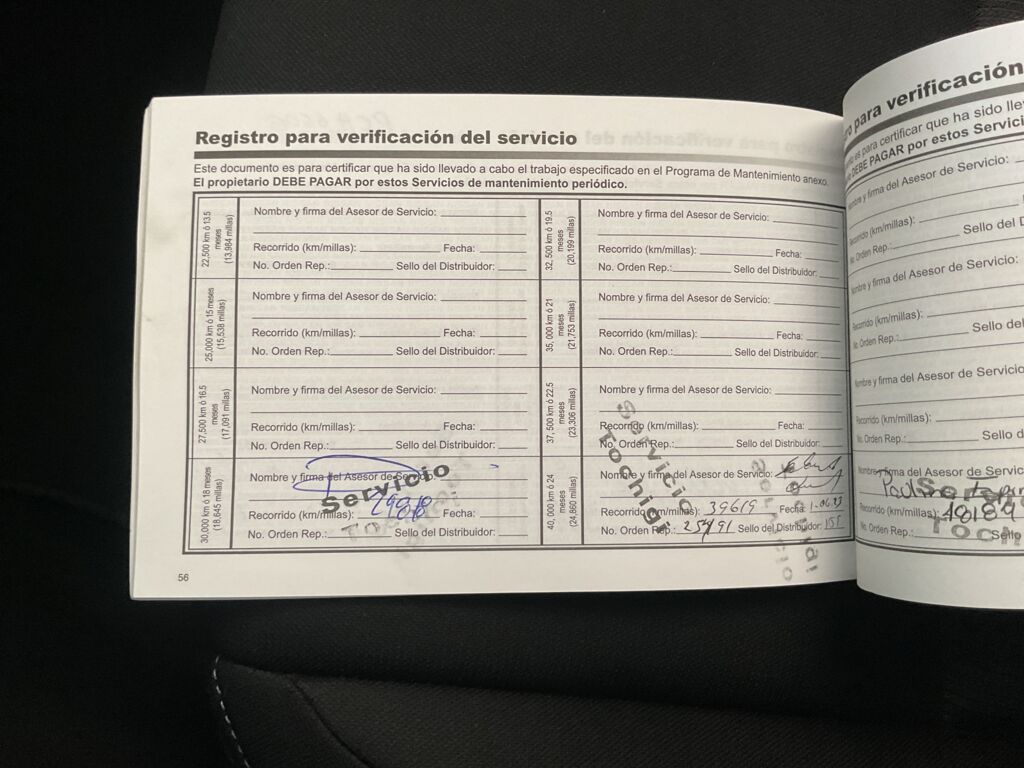 Registro para verificación del servicio
Este documento es para certificar que ha sido llevado a cabo el trabajo especificado en el Programa de Mantenimiento anexo.
El propietario DEBE PAGAR por estos Servicios de mantenimiento periódico.
22,500 km ó 13.5
meses
(13,984 millas)
Nombre y firma del Asesor de Servicio:
Recorrido (km/millas): Fecha:
No. Orden Rep.: Sello del Distribuidor:
25,000 km ó 15 meses
(15,538 millas)
Nombre y firma del Asesor de Servicio:
Recorrido (km/millas): Fecha:
No. Orden Rep.: Sello del Distribuidor:
27,500 km ó 16.5
meses
(17,091 millas)
Nombre y firma del Asesor de Servicio:
Recorrido (km/millas): Fecha:
No. Orden Rep.: Sello del Distribuidor:
30,000 km ó 18 meses
(18,645 millas)
Nombre y firma del Asesor de Servicio
Servicio
Recorrido (km/millas): 29818 Fecha:
No. Orden Rep.: Sello del Distribuidor:
32, 500 km ó 19.5
meses
(20,199 millas)
Nombre y firma del Asesor de Servicio:
Recorrido (km/millas): Fecha:
No. Orden Rep.: Sello del Distribuidor:
35, 000 km ó 21
meses
(21,753 millas)
Nombre y firma del Asesor de Servicio:
Recorrido (km/millas): Fecha:
No. Orden Rep.: Sello del Distribuidor:
37, 500 km ó 22.5
meses
(23,306 millas)
Nombre y firma del Asesor de Servicio:
Recorrido (km/millas): Fecha:
No. Orden Rep.: Sello del Distribuidor:
Servicio
Tochigi
40, 000 km ó 24
meses
(24,860 millas)
Nombre y firma del Asesor de Servicio:
Recorrido (km/millas): 39619 Fecha:
No. Orden Rep.: 25491 Sello del Distribuidor:
56
para verificación
es para certificar que ha sido
DEBE PAGAR por estos
Nombre y firma del Asesor de Servicio:
Recorrido (km/millas):
No. Orden Rep.: Sello
Nombre y firma del Asesor de Servicio:
Recorrido (km/millas):
No. Orden Rep.: Sello
Nombre y firma del Asesor de Servicio:
Recorrido (km/millas):
No. Orden Rep.: Sello
Nombre y firma del Asesor de
Recorrido (km/millas): 48189
No. Orden Rep.: Sello